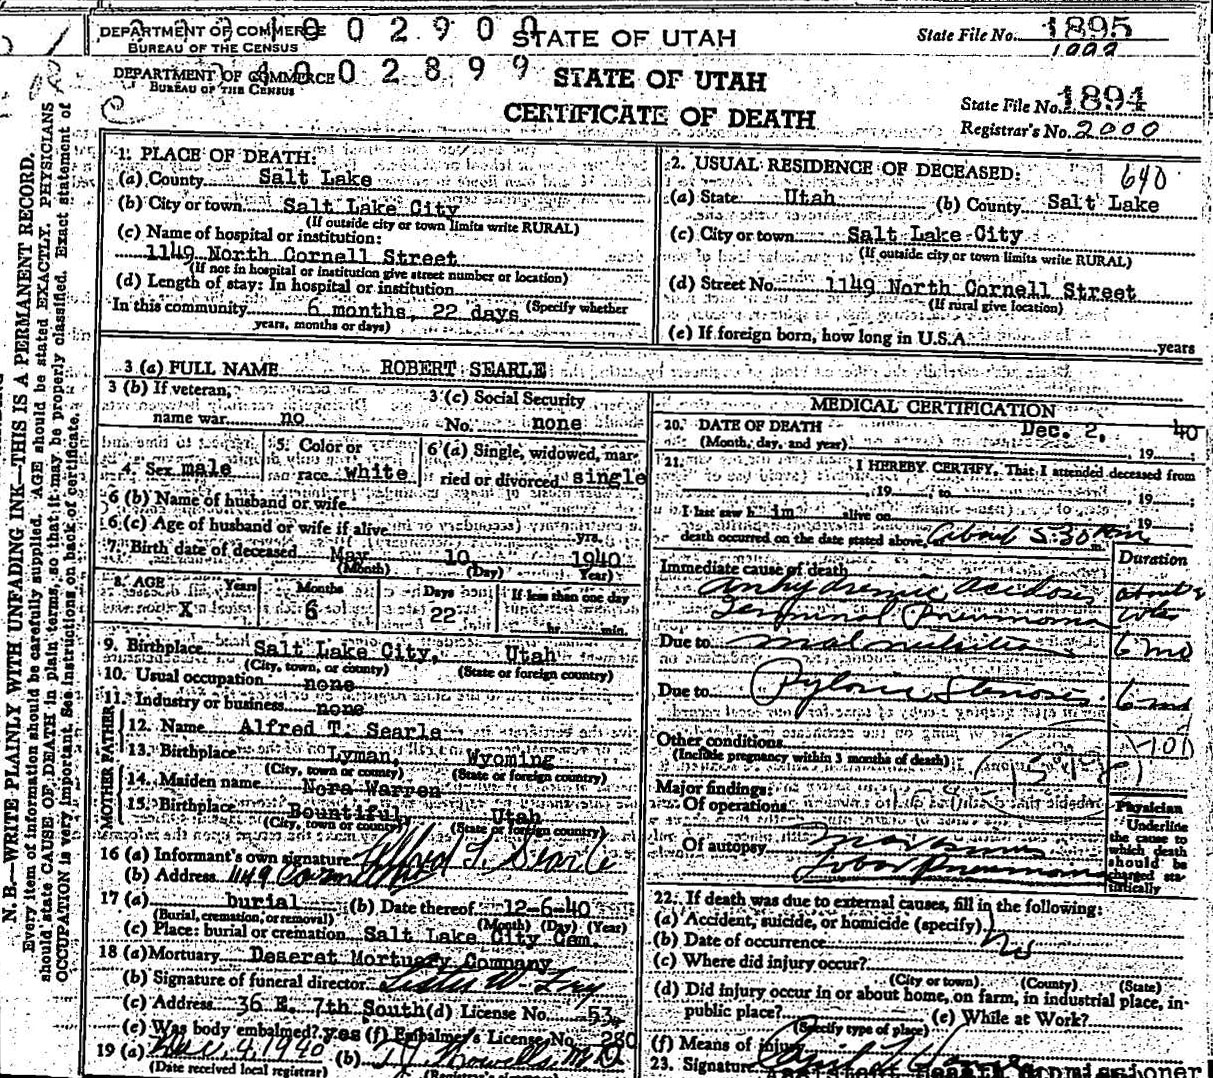 DEPARTMENT OF COMMERCE
BUREAU OF THE CENSUS
0 0 2 9 0 0
STATE OF UTAH
State File No. 1895
DEPARTMENT OF COMMERCE
BUREAU OF THE CENSUS
4 0 0 2 8 9 9
STATE OF UTAH
CERTIFICATE OF DEATH
State File No. 1894
Registrar's No. 2000
N. B.—WRITE PLAINLY WITH UNFADING INK—THIS IS A PERMANENT RECORD.
Every item of information should be carefully supplied. AGE should be stated EXACTLY. PHYSICIANS
should state CAUSE OF DEATH in plain terms, so that it may be properly classified. Exact statement of
OCCUPATION is very important. See instructions on back of certificate.
1. PLACE OF DEATH:
(a) County Salt Lake
(b) City or town Salt Lake City
(If outside city or town limits write RURAL)
(c) Name of hospital or institution:
1149 North Cornell Street
(If not in hospital or institution give street number or location)
(d) Length of stay: In hospital or institution
In this community 6 months, 22 days (Specify whether
years, months or days)
2. USUAL RESIDENCE OF DECEASED:
640
(a) State Utah (b) County Salt Lake
(c) City or town Salt Lake City
(If outside city or town limits write RURAL)
(d) Street No. 1149 North Cornell Street
(If rural give location)
(e) If foreign born, how long in U.S.A. years
3 (a) FULL NAME ROBERT SEARLE
3 (b) If veteran,
name war no
3 (c) Social Security
No. none
4. Sex male
5. Color or
race white
6 (a) Single, widowed, mar-
ried or divorced single
6 (b) Name of husband or wife
6 (c) Age of husband or wife if alive yrs.
7. Birth date of deceased May 10 1940
(Month) (Day) (Year)
8. AGE Years Months Days If less than one day
X 6 22 hr. min.
9. Birthplace Salt Lake City, Utah
(City, town, or county) (State or foreign country)
10. Usual occupation none
11. Industry or business none
FATHER
12. Name Alfred T. Searle
13. Birthplace Lyman, Wyoming
(City, town or county) (State or foreign country)
MOTHER
14. Maiden name Nora Warren
15. Birthplace Bountiful, Utah
(City, town or county) (State or foreign country)
16 (a) Informant's own signature Alfred T. Searle
(b) Address 1149 Cornell
17 (a) burial (b) Date thereof 12-6-40
(Burial, cremation, or removal) (Month) (Day) (Year)
(c) Place: burial or cremation Salt Lake City Cem.
18 (a) Mortuary Deseret Mortuary Company
(b) Signature of funeral director
(c) Address 36 E. 7th South (d) License No. 53
(e) Was body embalmed? yes (f) Embalmer's License No. 280
19 (a) Dec. 4, 1940 (b) M.D.
(Date received local registrar)
MEDICAL CERTIFICATION
20. DATE OF DEATH Dec. 2, 1940
(Month, day, and year)
21. I HEREBY CERTIFY, That I attended deceased from
, 19 , to , 19 ;
I last saw h im alive on , 19 ;
death occurred on the date stated above, at About 5:30 m.
Duration
Immediate cause of death
Anhydremic acidosis about
Terminal Pneumonia
Due to malnutrition 6 mo
Due to Pyloric Stenosis 6 mo
Other conditions
(Include pregnancy within 3 months of death)
Major findings:
Of operations
Of autopsy Marasmus
Lobar Pneumonia
Physician
Underline
the cause to
which death
should be
charged sta-
tistically
22. If death was due to external causes, fill in the following:
(a) Accident, suicide, or homicide (specify) No
(b) Date of occurrence
(c) Where did injury occur?
(City or town) (County) (State)
(d) Did injury occur in or about home, on farm, in industrial place, in
public place? (e) While at Work?
(Specify type of place)
(f) Means of injury
23. Signature
Assistant Health Commissioner